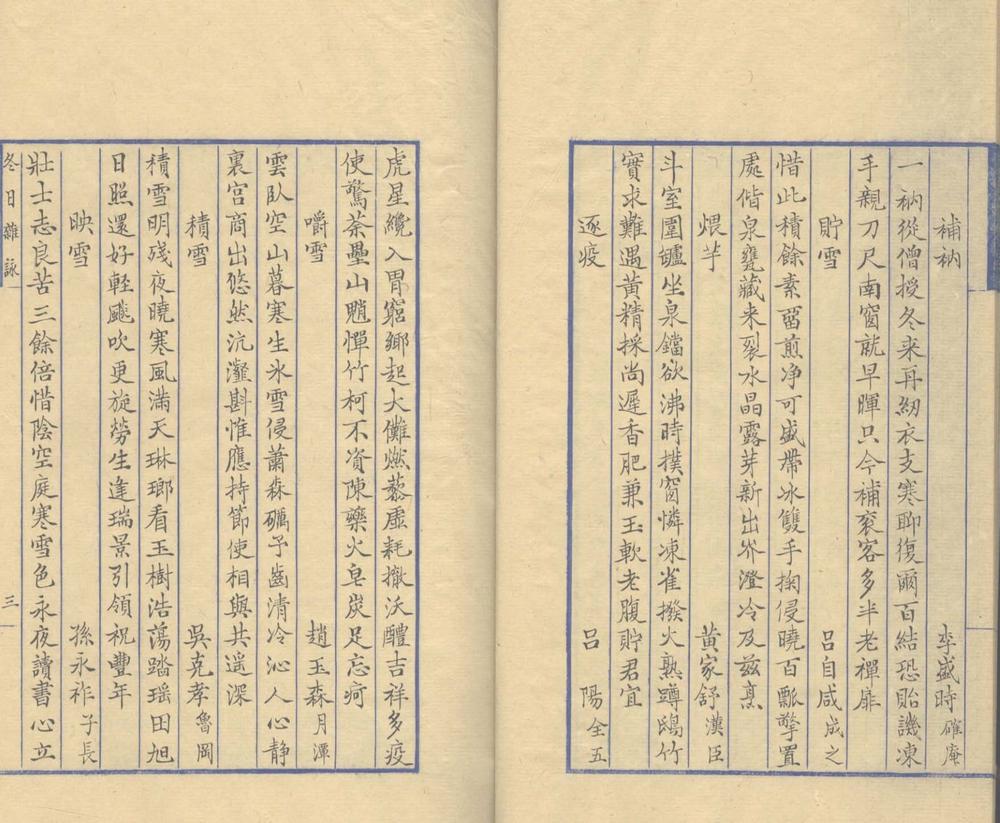 補衲　李盛時確庵
一衲從僧授冬来再紉衣支寒聊復爾百結恐貽譏凍
手親刀尺南窗就早暉只今補衮客多半老禪扉
貯雪　呂自咸成之
惜此積餘素留煎净可盛帶冰雙手掬侵曉百瓢擎置
處偕泉甕藏来裂水晶露芽新出岕澄冷及兹烹
煨芋　黄家舒漢臣
斗室圍罏坐泉鐺欲沸時撲窗憐凍雀撥火熟蹲鴟竹
實求難遇黄精採尚遲香肥兼玉軟老腹貯君宜
逐疫　呂陽全五
虎星纔入胃窮鄉起大儺燃藜虚耗撤沃醴吉祥多疫
使驚荼壘山魈憚竹柯不資陳藥火皂炭足忘疴
嚼雪　趙玉森月潭
雲臥空山暮寒生氷雪侵蕭森礪子齒清冷沁人心静
裏宫商出悠然沆瀣斟惟應持節使相與共遥深
積雪　吳克孝魯岡
積雪明殘夜曉寒風滿天琳瑯看玉樹浩蕩踏瑶田旭
日照還好軽飈吹更旋勞生逢瑞景引領祝豐年
映雪　孫永祚子長
壯士志良苦三餘倍惜陰空庭寒雪色永夜讀書心立
冬日雜詠　三